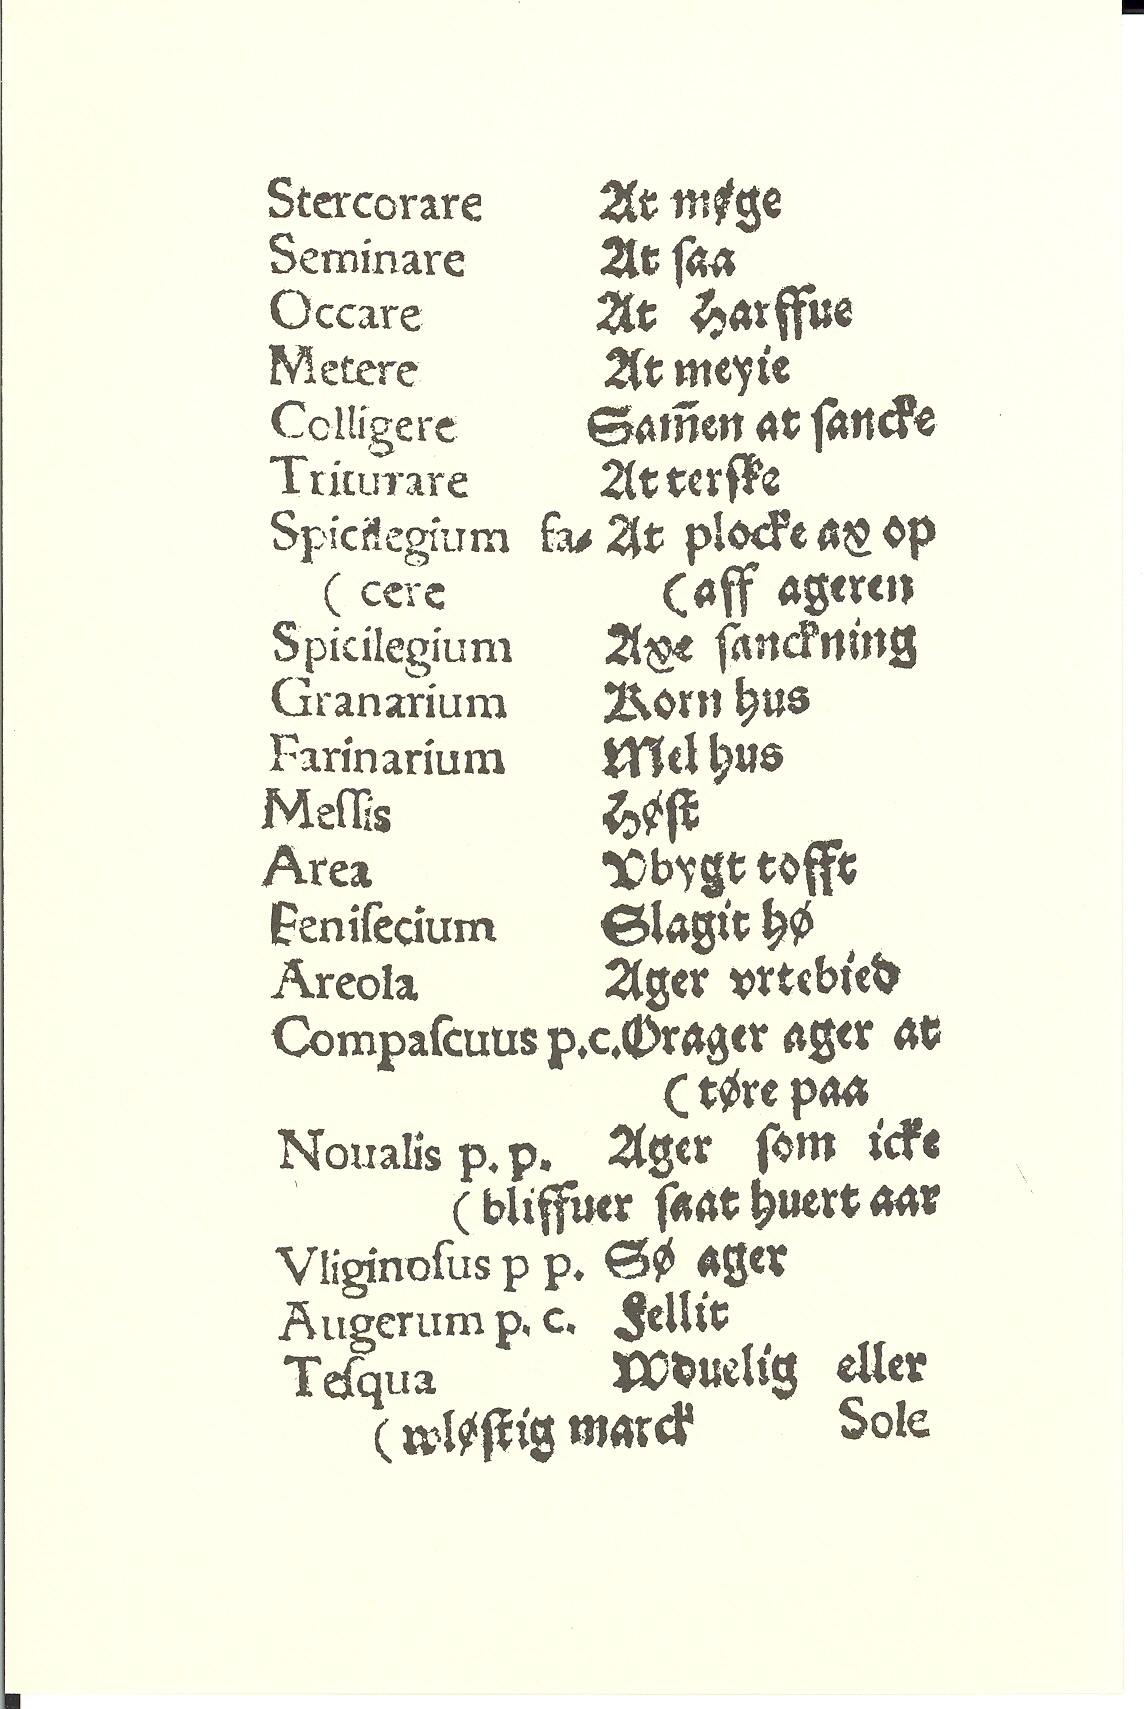 Stercorare At møge
Seminare At ſaa
Occare At Harffue
Metere At meyie
Colligere Sam̄en at ſancke
Triturare At terſke
Spicilegium fa⸗ At plocke ax op
( cere (aff ageren
Spicilegium Axe ſanckning
Granarium Korn hus
Farinarium Mel hus
Meſſis Høſt
Area Vbygt tofft
Feniſecium Slagit hø
Areola Ager vrtebied
Compaſcuus p.c. Orager ager at
(tøre paa
Noualis p. p. Ager ſom icke
(bliffuer ſaat huert aar
Vliginoſus p p. Sø ager
Augerum p. c. Fellit
Teſqua Wduelig eller
(wløſtig marck Sole